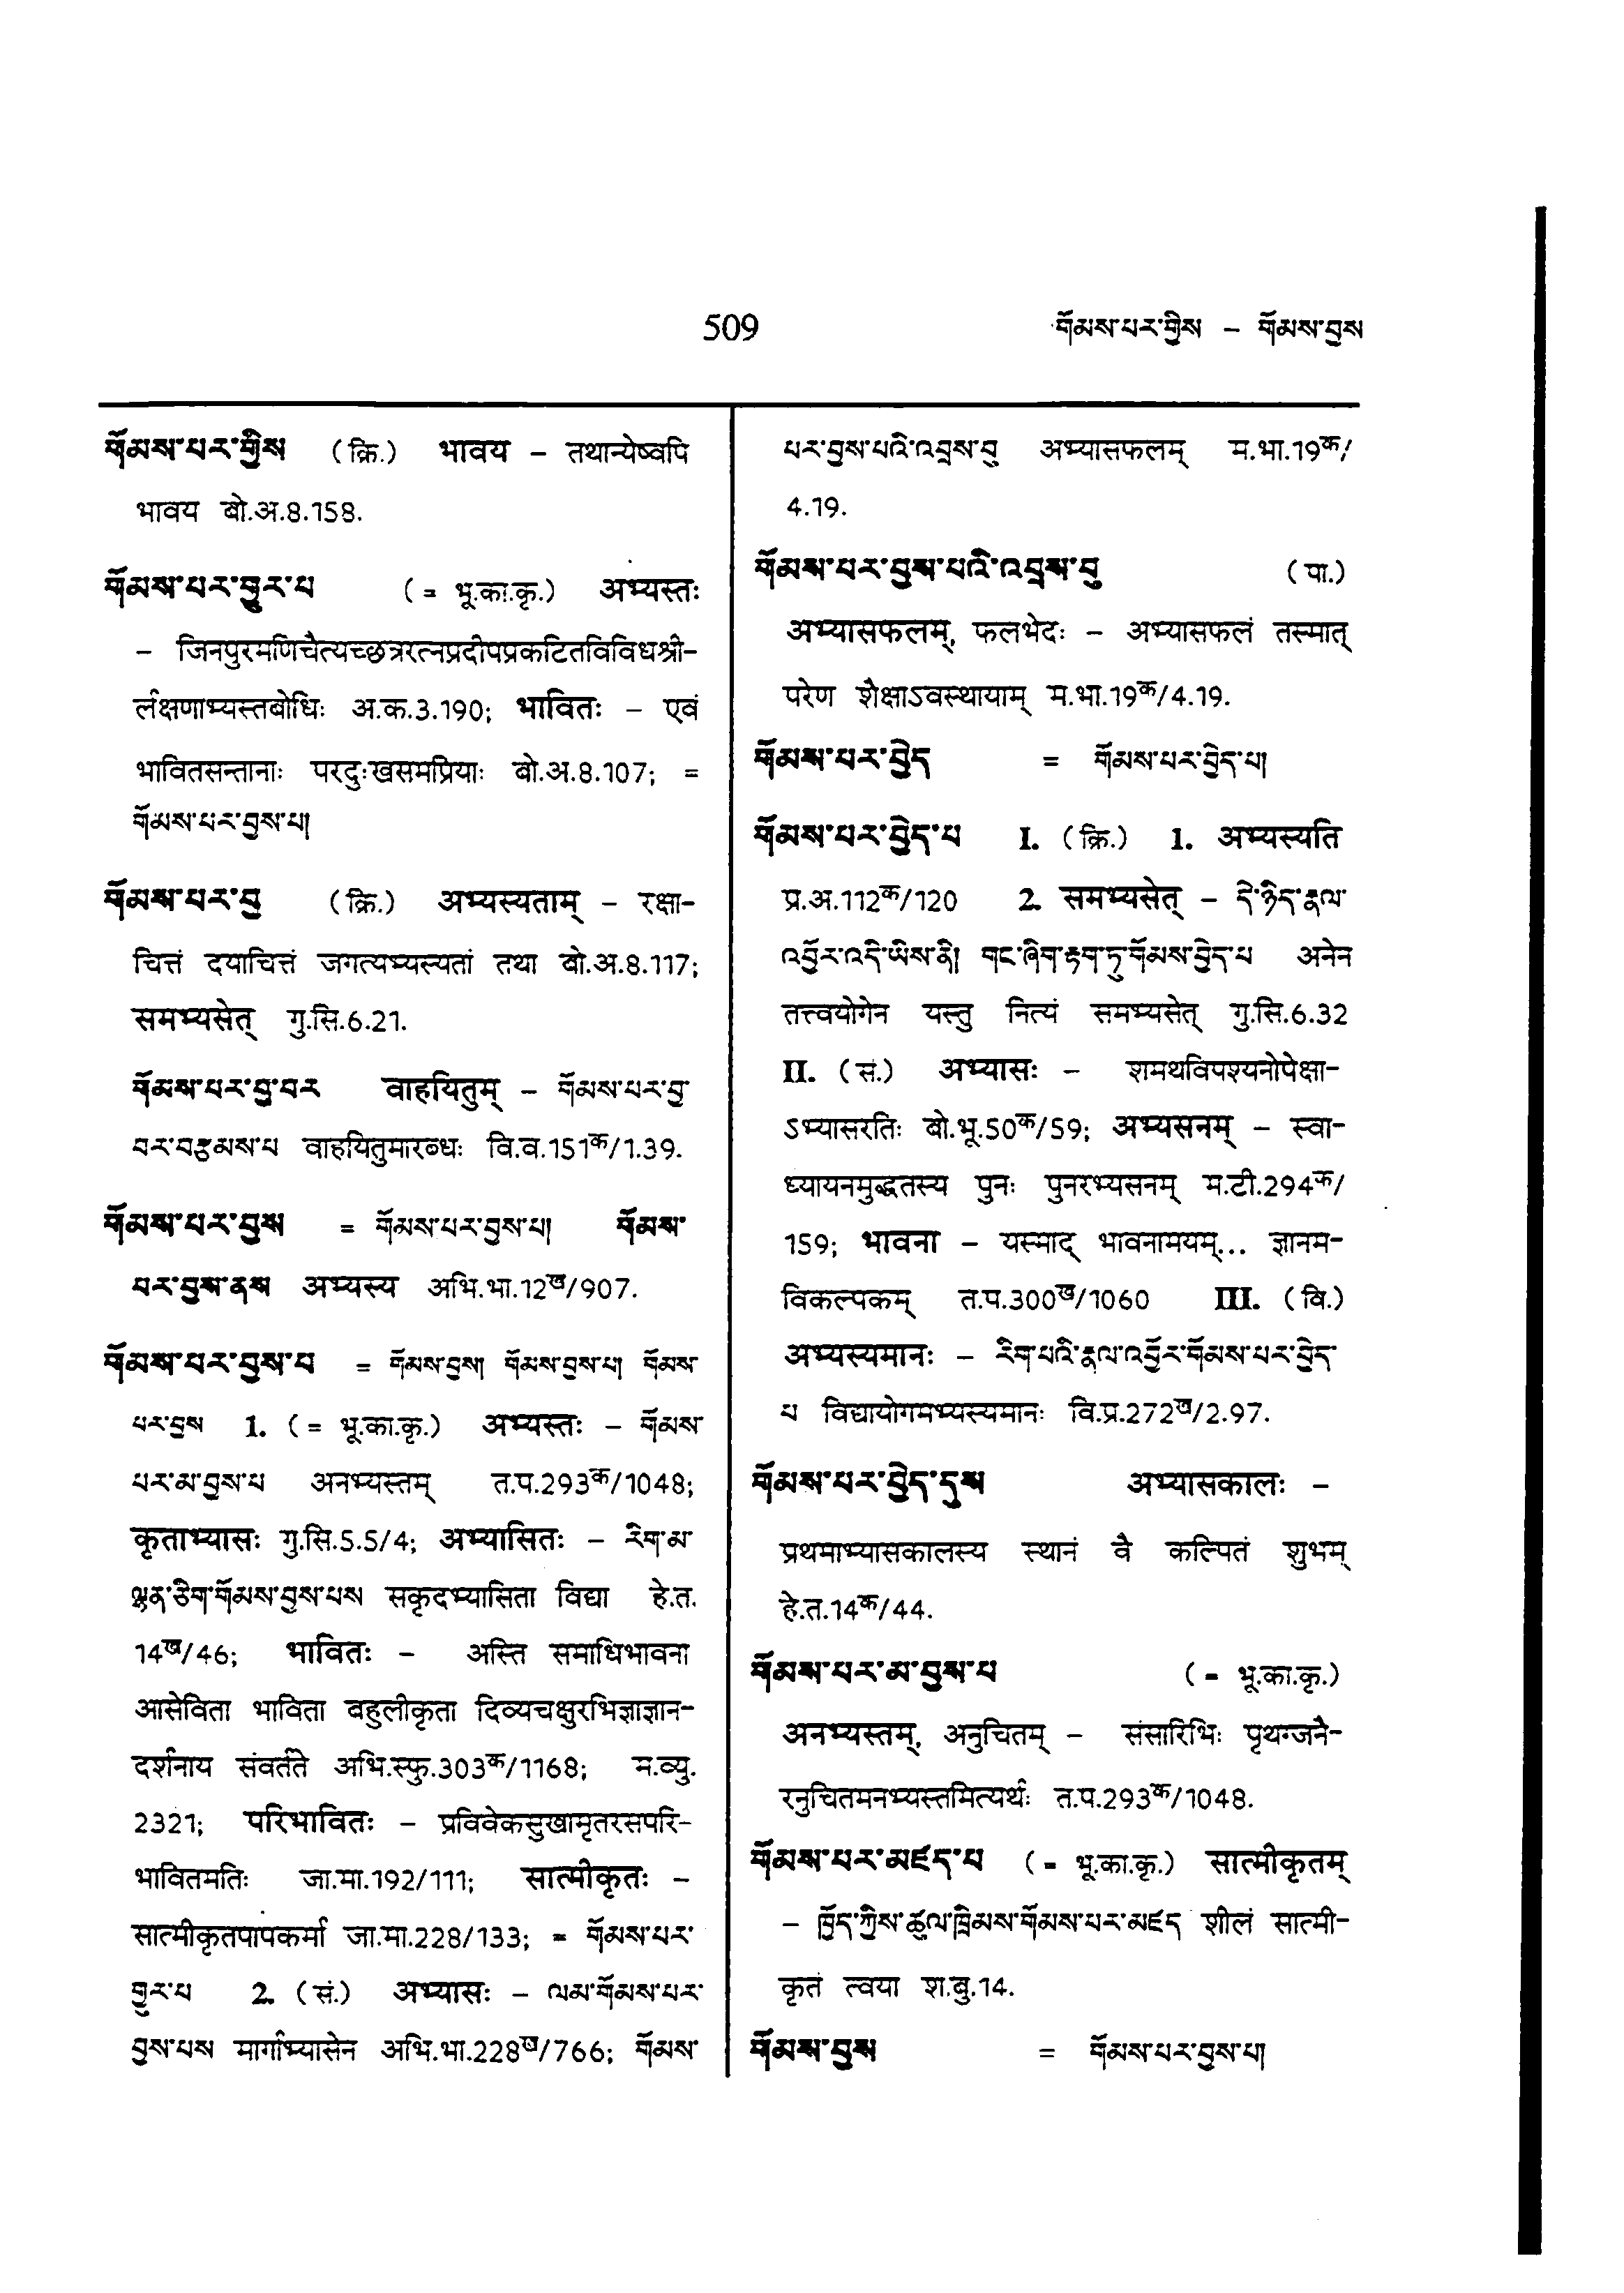 509
གོམས་པར་གྱིས – གོམས་བྱས
གོམས་པར་གྱིས (क्रि.) भावय – तथान्येष्वपि
भावय बो.अ.8.158.
གོམས་པར་གྱུར་པ (= भू.का.कृ.) अभ्यस्तः
– जिनपुरमणिचैत्यच्छत्ररत्नप्रदीपप्रकटितविविधश्री-
र्लक्षणाभ्यस्तबोधिः अ.क.3.190; भावितः – एवं
भावितसन्तानाः परदुःखसमप्रियाः बो.अ.8.107; =
གོམས་པར་བྱས་པ།
གོམས་པར་བྱ (क्रि.) अभ्यस्यताम् – रक्षा-
चित्तं दयाचित्तं जगत्यभ्यस्यतां तथा बो.अ.8.117;
समभ्यसेत् गु.सि.6.21.
གོམས་པར་བྱ་བར वाहयितुम् – གོམས་པར་བྱ་
བར་བརྩམས་པ वाहयितुमारब्धः वि.व.151क/1.39.
གོམས་པར་བྱས = གོམས་པར་བྱས་པ། གོམས་
པར་བྱས་ནས अभ्यस्य अभि.भा.12ख/907.
གོམས་པར་བྱས་པ = གོམས་བྱས། གོམས་བྱས་པ། གོམས་
པར་བྱས 1. (= भू.का.कृ.) अभ्यस्तः – གོམས་
པར་མ་བྱས་པ अनभ्यस्तम् त.प.293क/1048;
कृताभ्यासः गु.सि.5.5/4; अभ्यासितः – རིག་མ་
ལྷན་ཅིག་གོམས་བྱས་པས सकृदभ्यासिता विद्या हे.त.
14ख/46; भावितः – अस्ति समाधिभावना
आसेविता भाविता बहुलीकृता दिव्यचक्षुरभिज्ञाज्ञान-
दर्शनाय संवर्तते अभि.स्फु.303क/1168; म.व्यु.
2321; परिभावितः – प्रविवेकसुखामृतरसपरि-
भावितमतिः जा.मा.192/111; सात्मीकृतः –
सात्मीकृतपापकर्मा जा.मा.228/133; = གོམས་པར་
གྱུར་པ 2. (सं.) अभ्यासः – ལམ་གོམས་པར་
བྱས་པས मार्गाभ्यासेन अभि.भा.228ख/766; གོམས་
པར་བྱས་པའི་འབྲས་བུ अभ्यासफलम् म.भा.19क/
4.19.
གོམས་པར་བྱས་པའི་འབྲས་བུ (पा.)
अभ्यासफलम्, फलभेदः – अभ्यासफलं तस्मात्
परेण शैक्षाऽवस्थायाम् म.भा.19क/4.19.
གོམས་པར་བྱེད = གོམས་པར་བྱེད་པ།
གོམས་པར་བྱེད་པ I. (क्रि.) 1. अभ्यस्यति
प्र.अ.112क/120 2. समभ्यसेत् – དེ་ཉིད་རྣལ་
འབྱོར་འདི་ཡིས་ནི། གང་ཞིག་རྟག་ཏུ་གོམས་བྱེད་པ अनेन
तत्त्वयोगेन यस्तु नित्यं समभ्यसेत् गु.सि.6.32
II. (सं.) अभ्यासः – शमथविपश्यनोपेक्षा-
ऽभ्यासरतिः बो.भू.50क/59; अभ्यसनम् – स्वा-
ध्यायनमुद्धतस्य पुनः पुनरभ्यसनम् म.टी.294क/
159; भावना – यस्माद् भावनामयम्... ज्ञानम-
विकल्पकम् त.प.300ख/1060 III. (वि.)
अभ्यस्यमानः – རིག་པའི་རྣལ་འབྱོར་གོམས་པར་བྱེད་
པ विद्यायोगमभ्यस्यमानः वि.प्र.272ख/2.97.
གོམས་པར་བྱེད་དུས अभ्यासकालः –
प्रथमाभ्यासकालस्य स्थानं वै कल्पितं शुभम्
हे.त.14क/44.
གོམས་པར་མ་བྱས་པ (= भू.का.कृ.)
अनभ्यस्तम्, अनुचितम् – संसारिभिः पृथग्जनै-
रनुचितमनभ्यस्तमित्यर्थः त.प.293क/1048.
གོམས་པར་མཛད་པ (= भू.का.कृ.) सात्मीकृतम्
– ཁྱོད་ཀྱིས་ཚུལ་ཁྲིམས་གོམས་པར་མཛད शीलं सात्मी-
कृतं त्वया श.बु.14.
གོམས་བྱས = གོམས་པར་བྱས་པ།